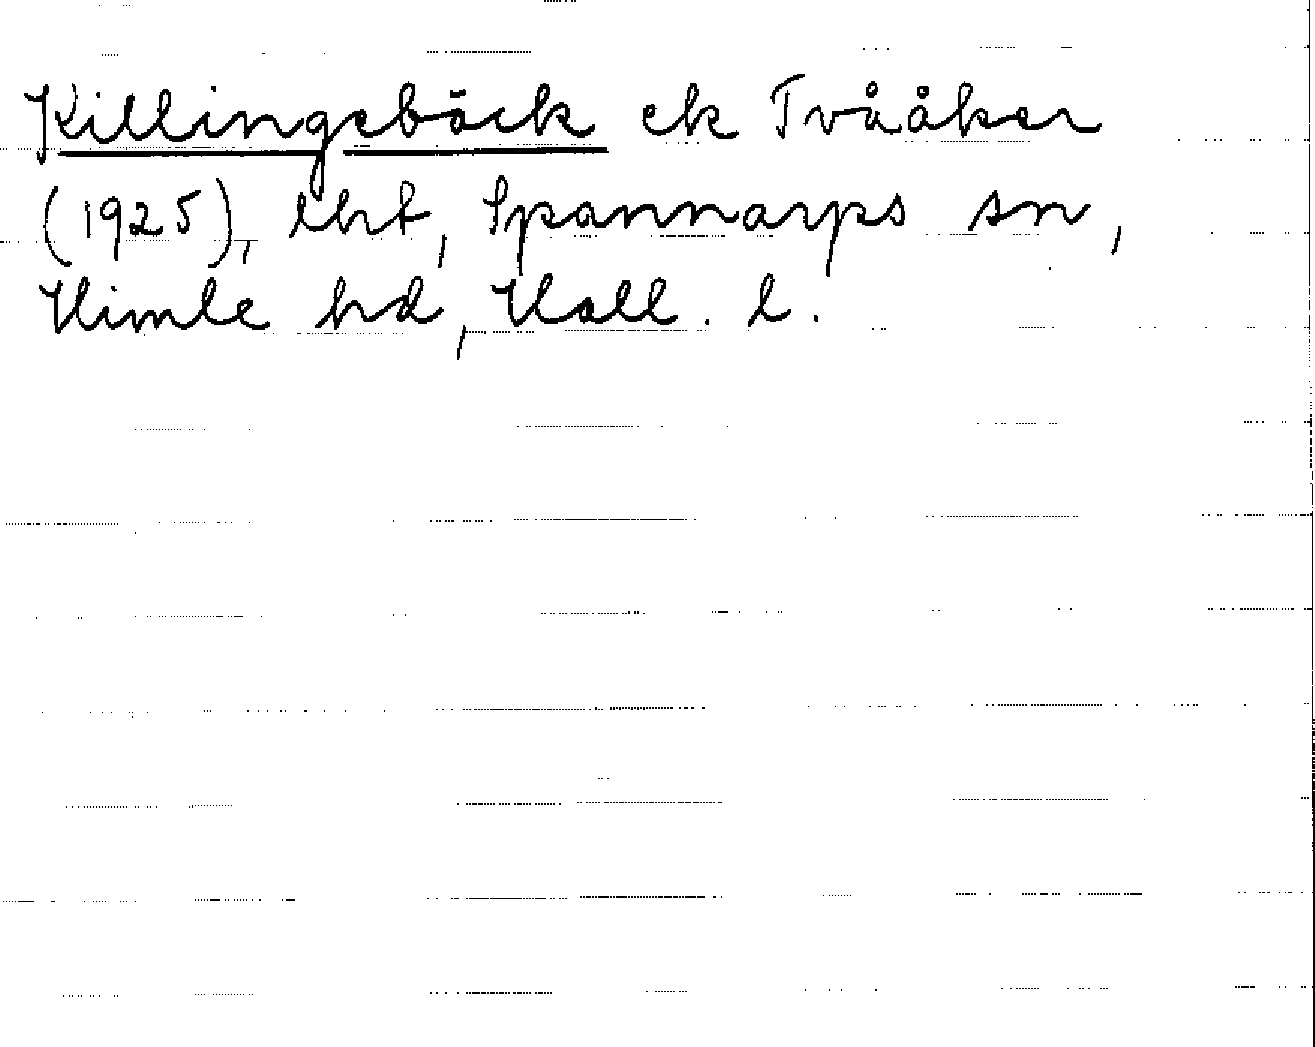 Killingebäck ek Tvååker
(1925), lht, Spannarps sn,
Himle hd, Hall. l.